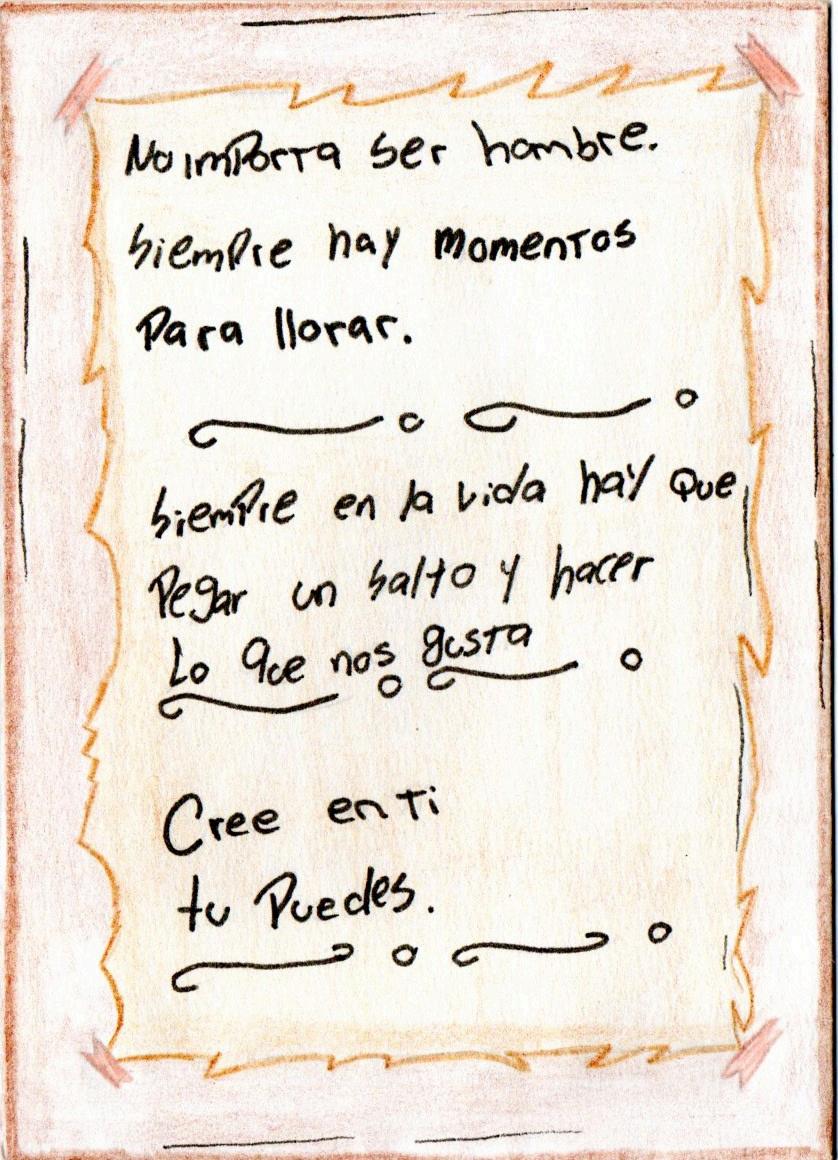 No importa ser hombre.
Siempre hay momentos
Para llorar.
Siempre en la vida hay que
Pegar un salto y hacer
Lo que nos gusta
Cree en Ti
tu Puedes.